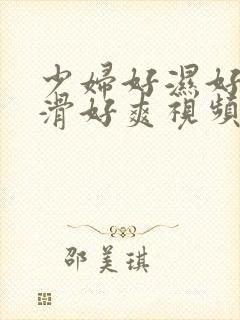 少婦好濕好
滑好爽視頻
邵美琪